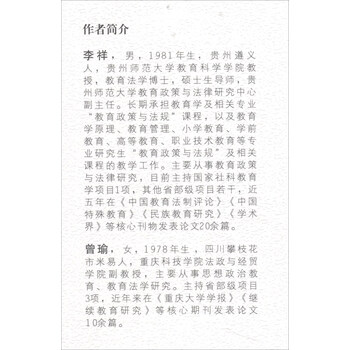 作者简介
李祥，男，1981年生，贵州遵义
人，贵州师范大学教育科学学院教
授，教育法学博士，硕士生导师，贵
州师范大学教育政策与法律研究中心
副主任。长期承担教育学及相关专业
“教育政策与法规”课程，以及教育
学原理、教育管理、小学教育、学前
教育、高等教育、职业技术教育等专
业研究生“教育政策与法规”及相关
课程的教学工作。主要从事教育政策
与法律研究，目前主持国家社科教育
学项目1项，其他省部级项目若干，近
五年在《中国教育法制评论》《中国
特殊教育》《民族教育研究》《学术
界》等核心刊物发表论文20余篇。
曾瑜，女，1978年生，四川攀枝花
市米易人，重庆科技学院法政与经贸
学院副教授，主要从事思想政治教
育、教育法学研究。主持省部级项目
3项，近年来在《重庆大学学报》《继
续教育研究》等核心期刊发表论文
10余篇。